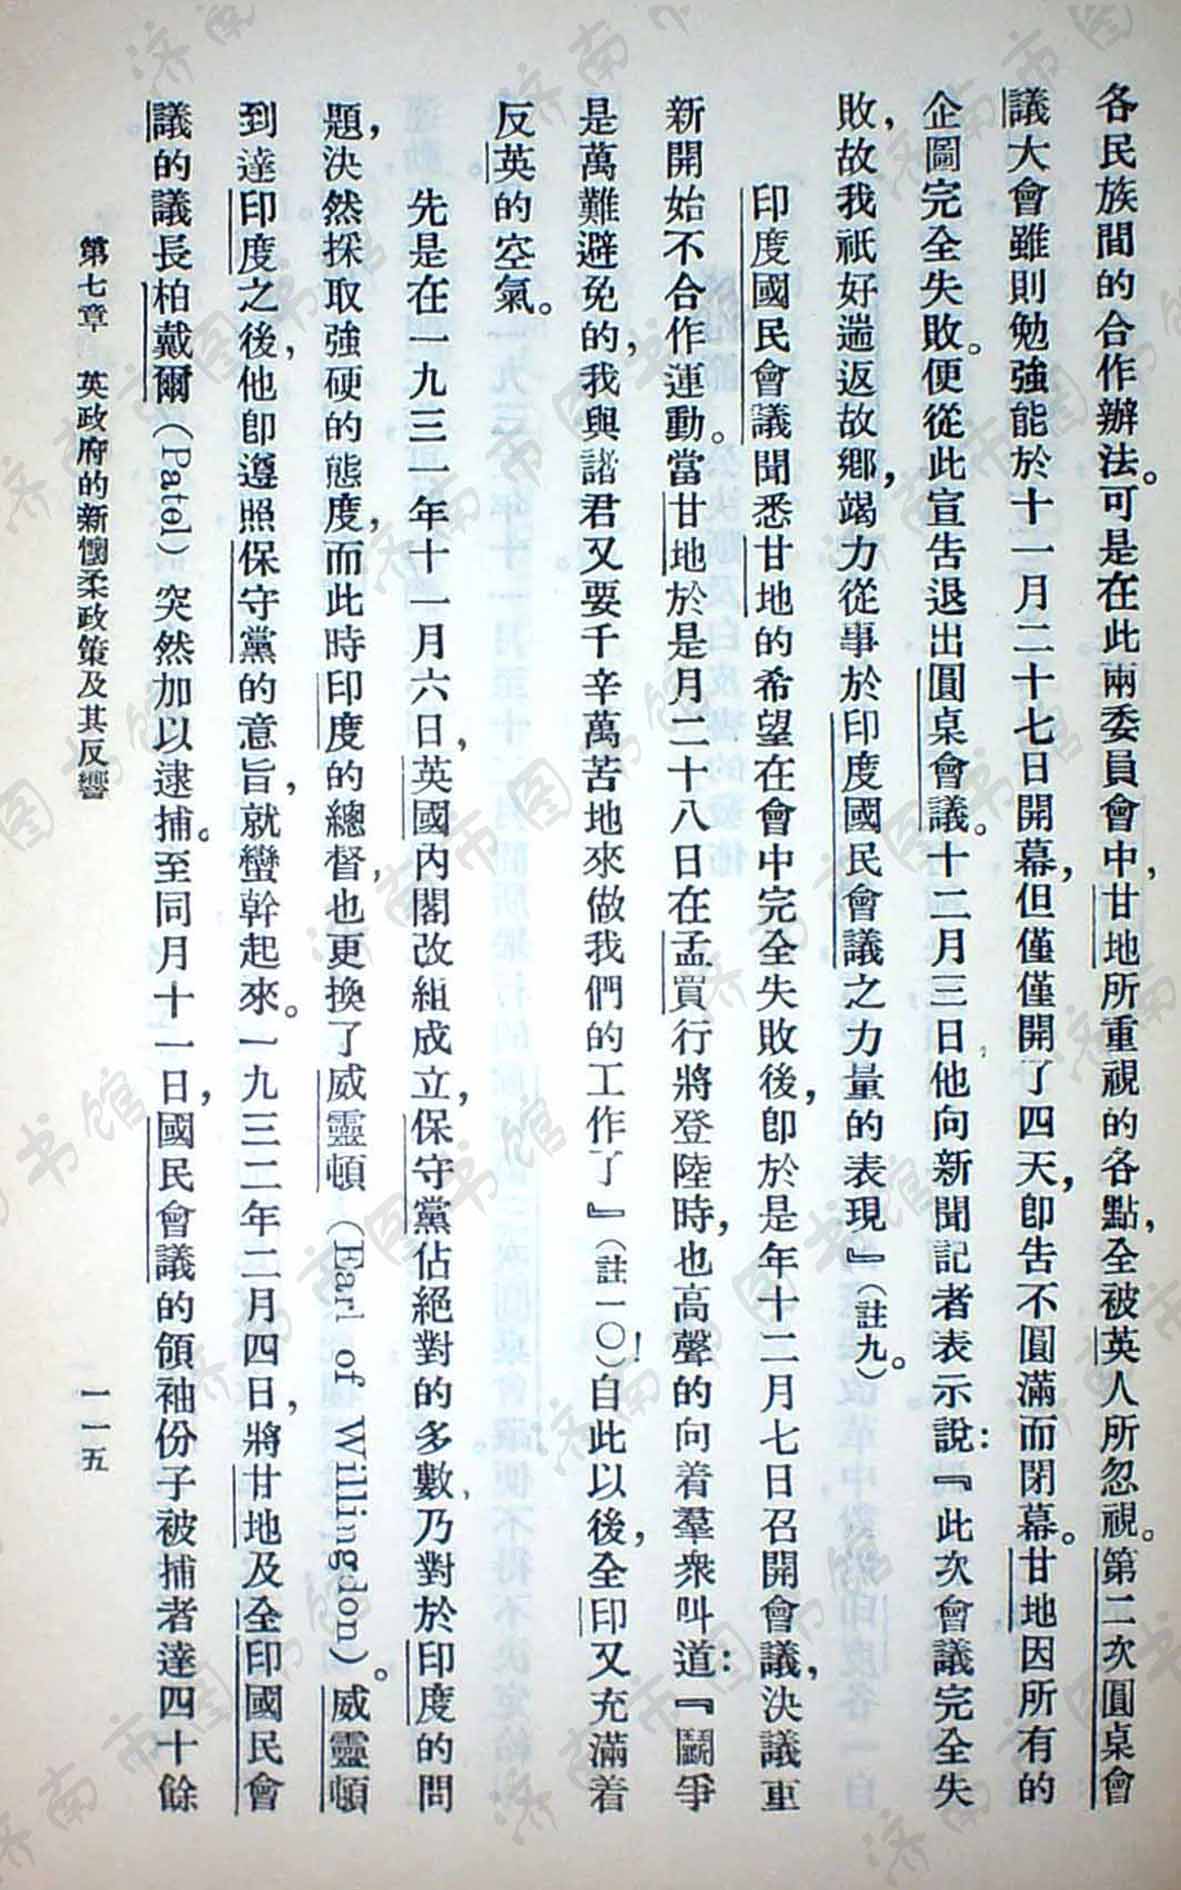 各民族間的合作辦法。可是在此兩委員會中，甘地所重視的各點，全被英人所忽視。第二次圓桌會
議大會雖則勉強能於十一月二十七日開幕，但僅僅開了四天，即告不圓滿而閉幕。甘地因所有的
企圖完全失敗。便從此宣告退出圓桌會議。十二月三日，他向新聞記者表示說：『此次會議完全失
敗，故我祇好遄返故鄉，竭力從事於印度國民會議之力量的表現』（註九）。
印度國民會議聞悉甘地的希望在會中完全失敗後，即於是年十二月七日召開會議，決議重
新開始不合作運動。當甘地於是月二十八日在孟買行將登陸時，也高聲的向着羣衆叫道：『鬭爭
是萬難避免的，我與諸君又要千辛萬苦地來做我們的工作了』（註一〇）！自此以後，全印又充滿着
反英的空氣。
先是在一九三一年十一月六日，英國內閣改組成立，保守黨佔絕對的多數，乃對於印度的問
題，決然採取強硬的態度，而此時印度的總督，也更換了威靈頓（Earl of Willingdon）。威靈頓
到達印度之後，他即遵照保守黨的意旨，就蠻幹起來。一九三二年二月四日，將甘地及全印國民會
議的議長柏戴爾（Patel）突然加以逮捕。至同月十一日，國民會議的領袖份子被捕者達四十餘
第七章　英政府的新懷柔政策及其反響
一一五
济南市图书馆